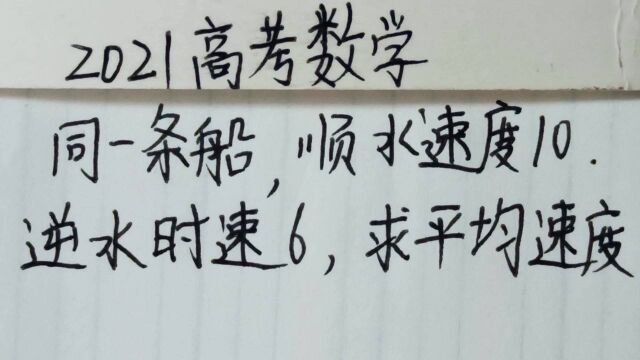 2021高考数学
同一条船,顺水速度10.
逆水时速6,求平均速度